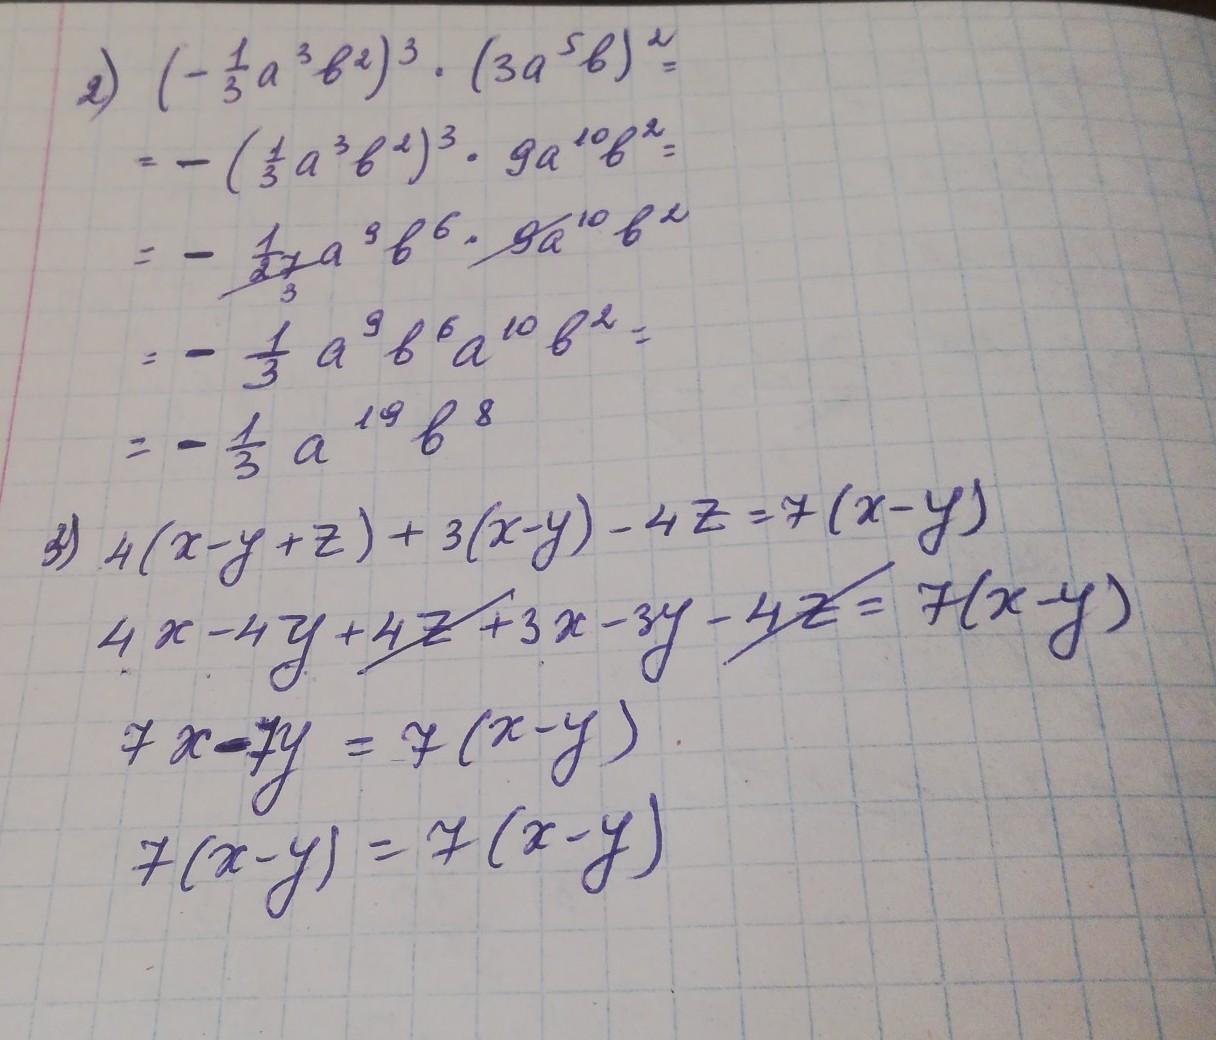 2) (-1/3 a³b²)³ · (3a⁵b)² =
= - (1/3 a³b²)³ · 9a¹⁰b² =
= - 1/27 a⁹b⁶ · 9a¹⁰b²
3
= - 1/3 a⁹b⁶a¹⁰b² =
= - 1/3 a¹⁹b⁸
3) 4(x-y+z)+3(x-y)-4z=7(x-y)
4x-4y+4z+3x-3y-4z=7(x-y)
7x-7y=7(x-y)
7(x-y)=7(x-y)